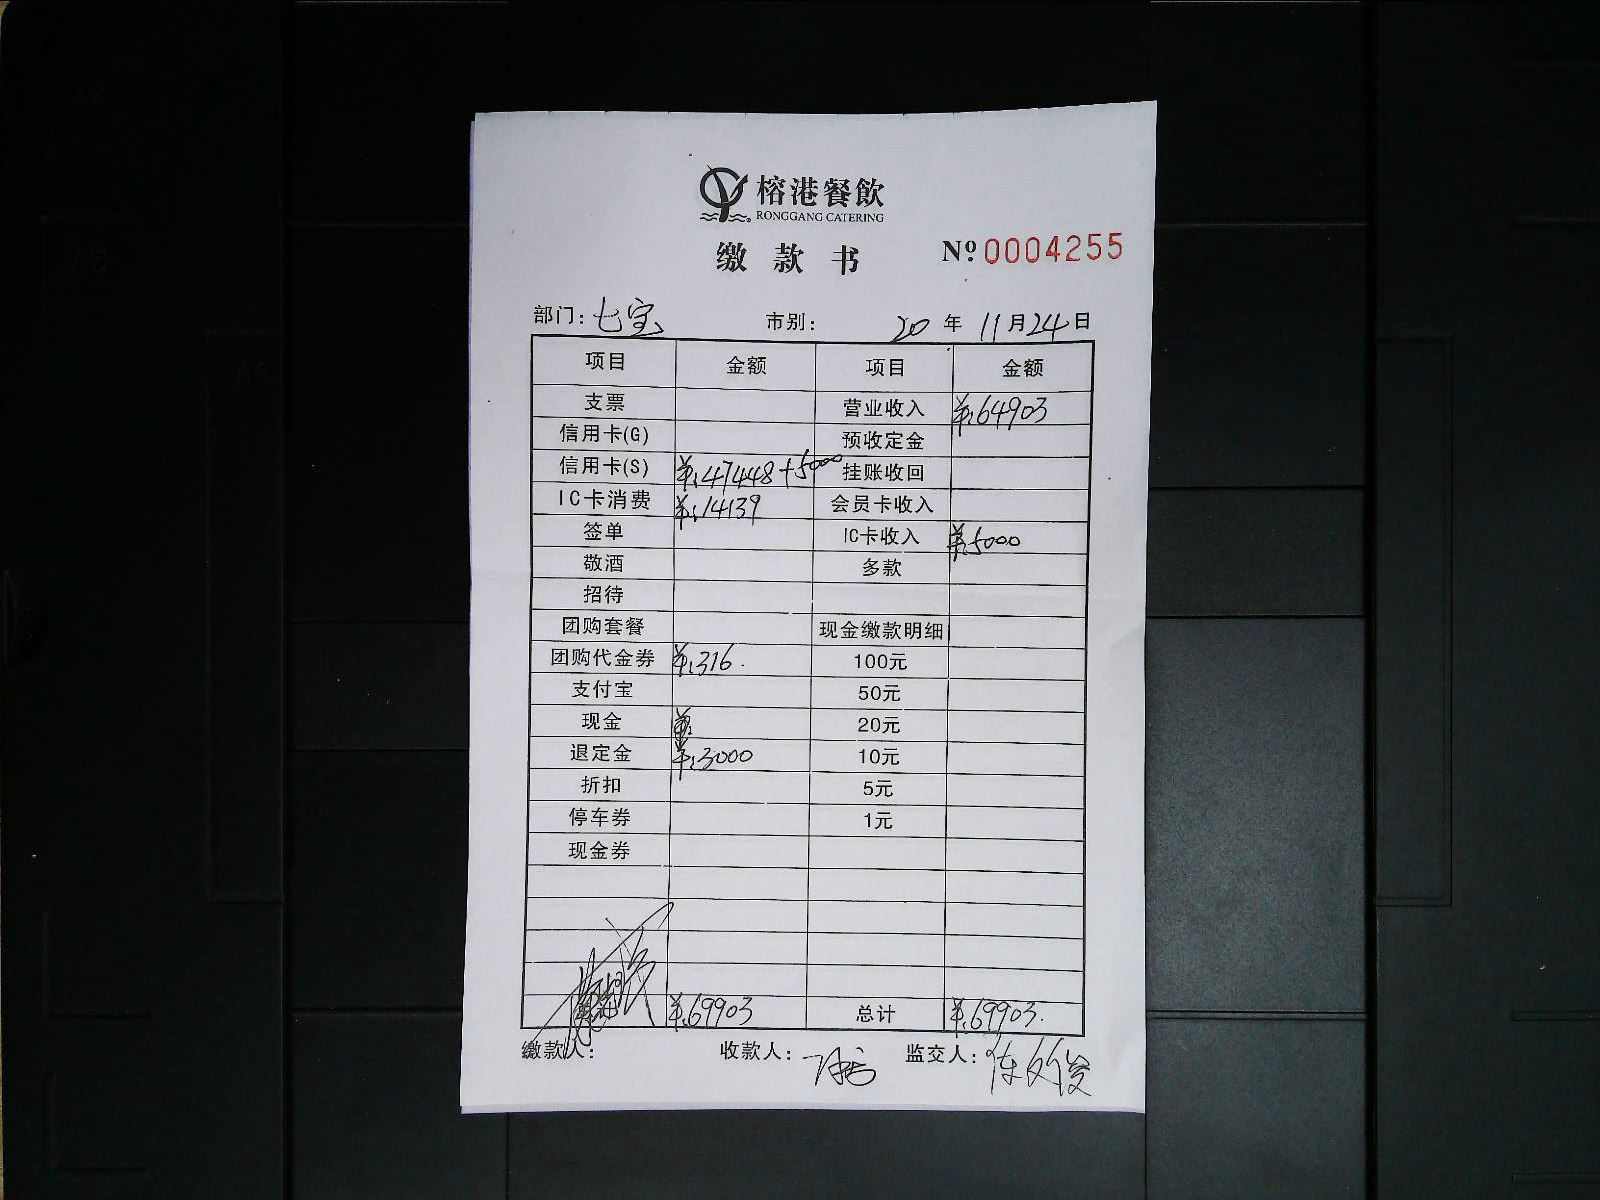 榕港餐飲
RONGGANG CATERING
缴款书 №0004255
部门：七宝 市别： 20年11月24日
项目 金额 项目 金额
支票 营业收入 ¥:64903
信用卡(G) 预收定金
信用卡(S) ¥:47448+5000 挂账收回
IC卡消费 ¥:14139 会员卡收入
签单 IC卡收入 ¥:5000
敬酒 多款
招待
团购套餐 现金缴款明细
团购代金券 ¥:316. 100元
支付宝 50元
现金 ¥: 20元
退定金 ¥:3000 10元
折扣 5元
停车券 1元
现金券
¥:69903 总计 ¥:69903.
缴款人： 收款人： 监交人：